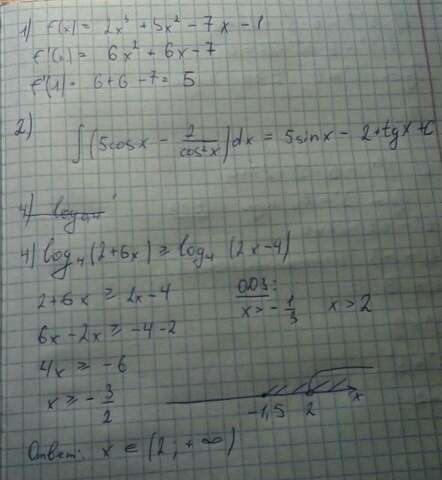 1) f(x) = 2x³ + 5x² - 7x - 1
f'(x) = 6x² + 6x - 7
f'(1) = 6+6-7 = 5
2)
∫(5cosx - 2/cos²x)dx = 5sinx - 2+tgx+c
4) log₀,₄
4) log₄(2+6x) ≥ log₄(2x-4)
2+6x ≥ 2x-4 ОДЗ:
x > -1/3 x > 2
6x-2x ≥ -4-2
4x ≥ -6
x ≥ -3/2
-1,5 2 x
Ответ: x ∈ (2; +∞)